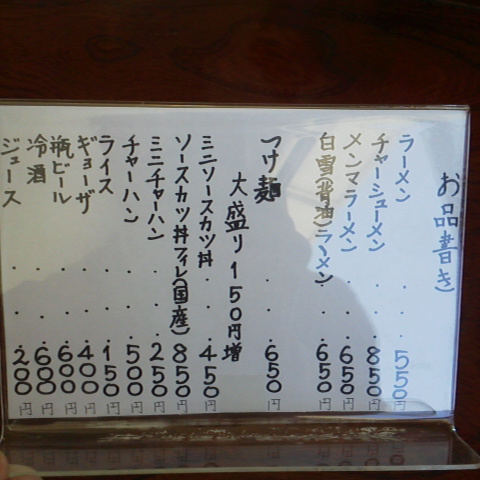 お品書き
ラーメン・・・550円
チャーシューメン・・850円
メンマラーメン・・650円
白雪(背油)ラーメン・650円
つけ麺・・・650円
大盛り150円増
ミニソースカツ丼・・450円
ソースカツ丼フィレ(国産)・850円
ミニチャーハン・・250円
チャーハン・・・500円
ライス・・・150円
ギョーザ・・・400円
瓶ビール・・・600円
冷酒・・・600円
ジュース・・・200円